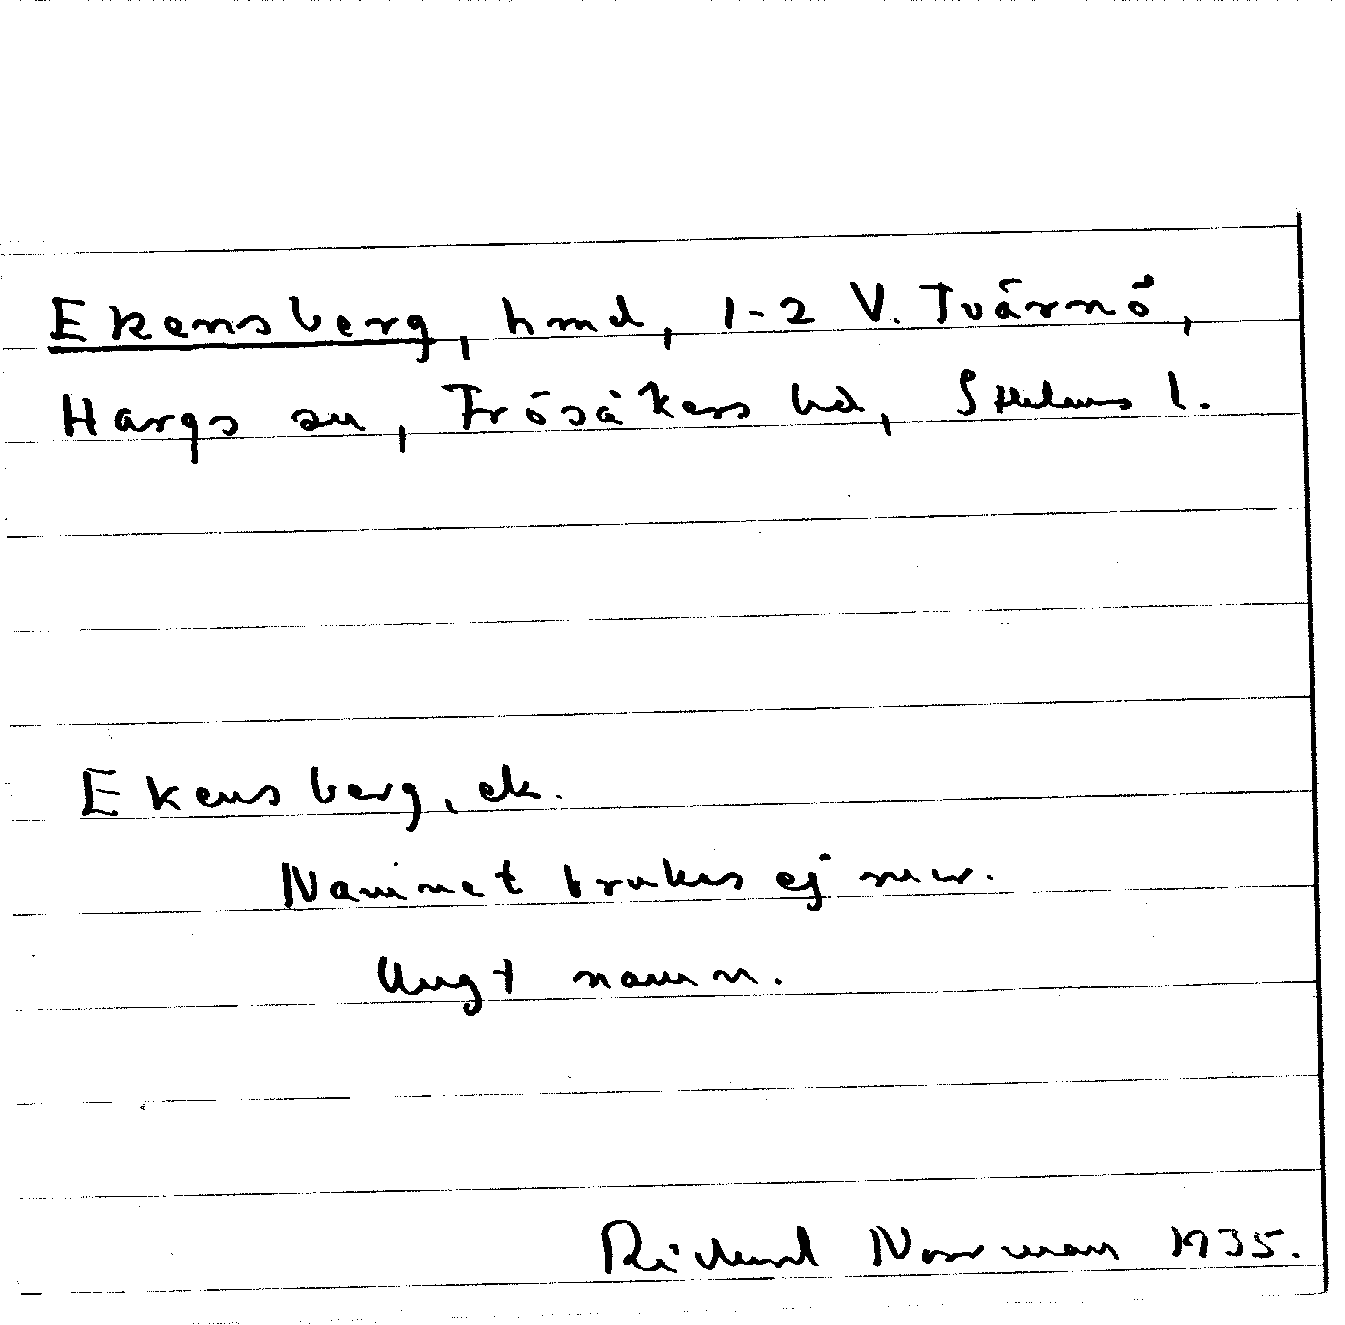 Ekensberg, hmd, 1-2 V. Tvärnö,
Hargs sn, Frösåkers hd, Sthlms l.
Ekensberg, ek.
Namnet brukas ej mer.
Ungt namn.
Richard Norrman 1935.